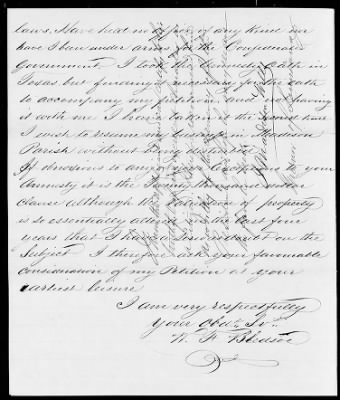 laws. Have held no office of any kind nor
have I been under arms for the Confederate
Government. I took the Amnesty Oath in
Texas but finding it necessary for the oath
to accompany my petition, and not having
it with me I have taken it the second time
I wish to resume my business in Madison
Parish without being disturbed.
If obnoxious to any of the Exceptions in your
Amnesty it is the Twenty thousand dollar
clause although the valuation of property
is so essentially altered in the last four
years that I have a serious doubt on the
Subject. I therefore ask your favourable
Consideration of my Petition at your
earliest leisure
I am very respectfully
Your Obdt. Sv.
W. F. Bledsoe